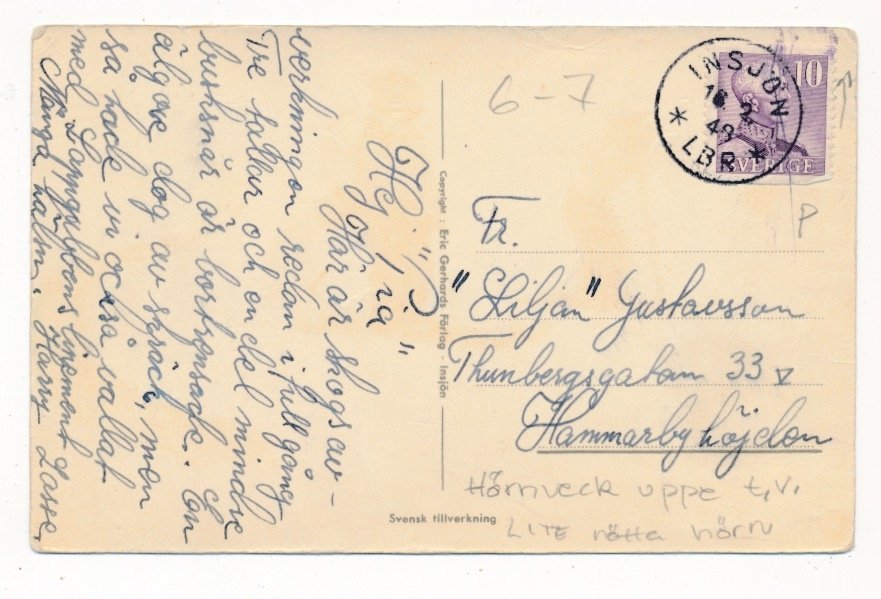 Hej
Här är skogsav-
verkningen redan i full gång
Tre tallar och en del mindre
busksnår är bortrensade. En
älgoxe dog av skräck, men
så hade vi också vallat
med Lappgubbens liniment
Många hälsn. Harry Lasse.
Copyright: Eric Gerhards Förlag - Insjön
Svensk tillverkning
6-7
INSJÖN
2
LBR
10
SVERIGE
P
Fr.
"Liljan" Gustavsson
Thunbergsgatan 33
Hammarbyhöjden
Hörnveck uppe t.v.
LITE nötta hörn